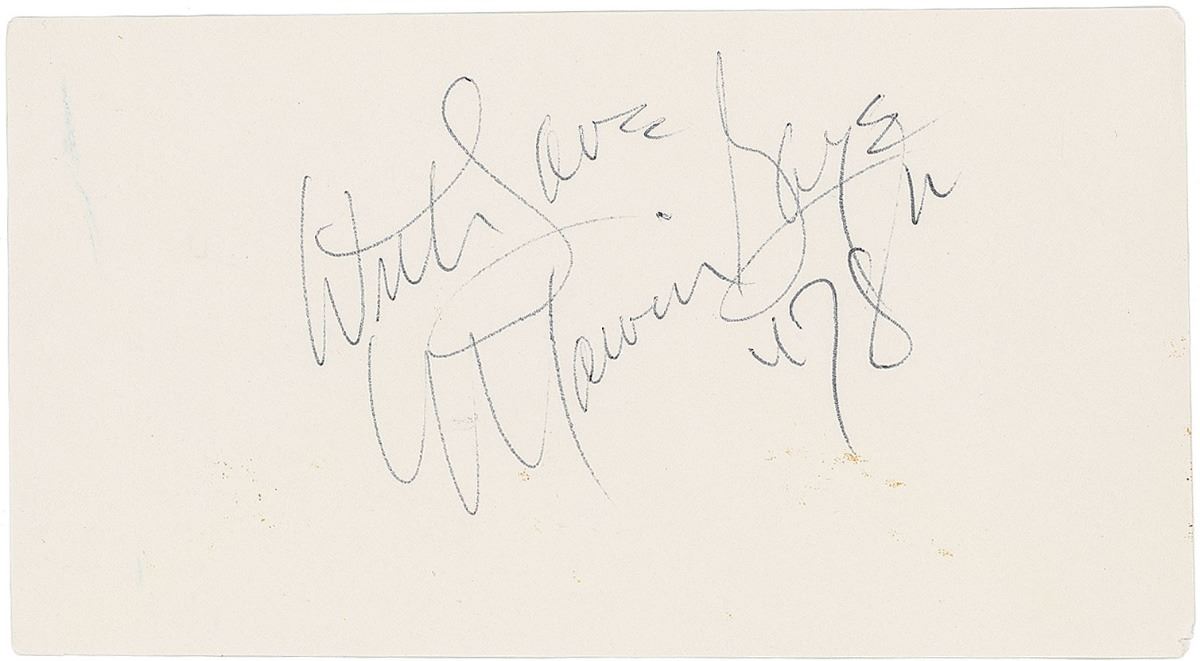 With Love
Marvin Gaye
"78